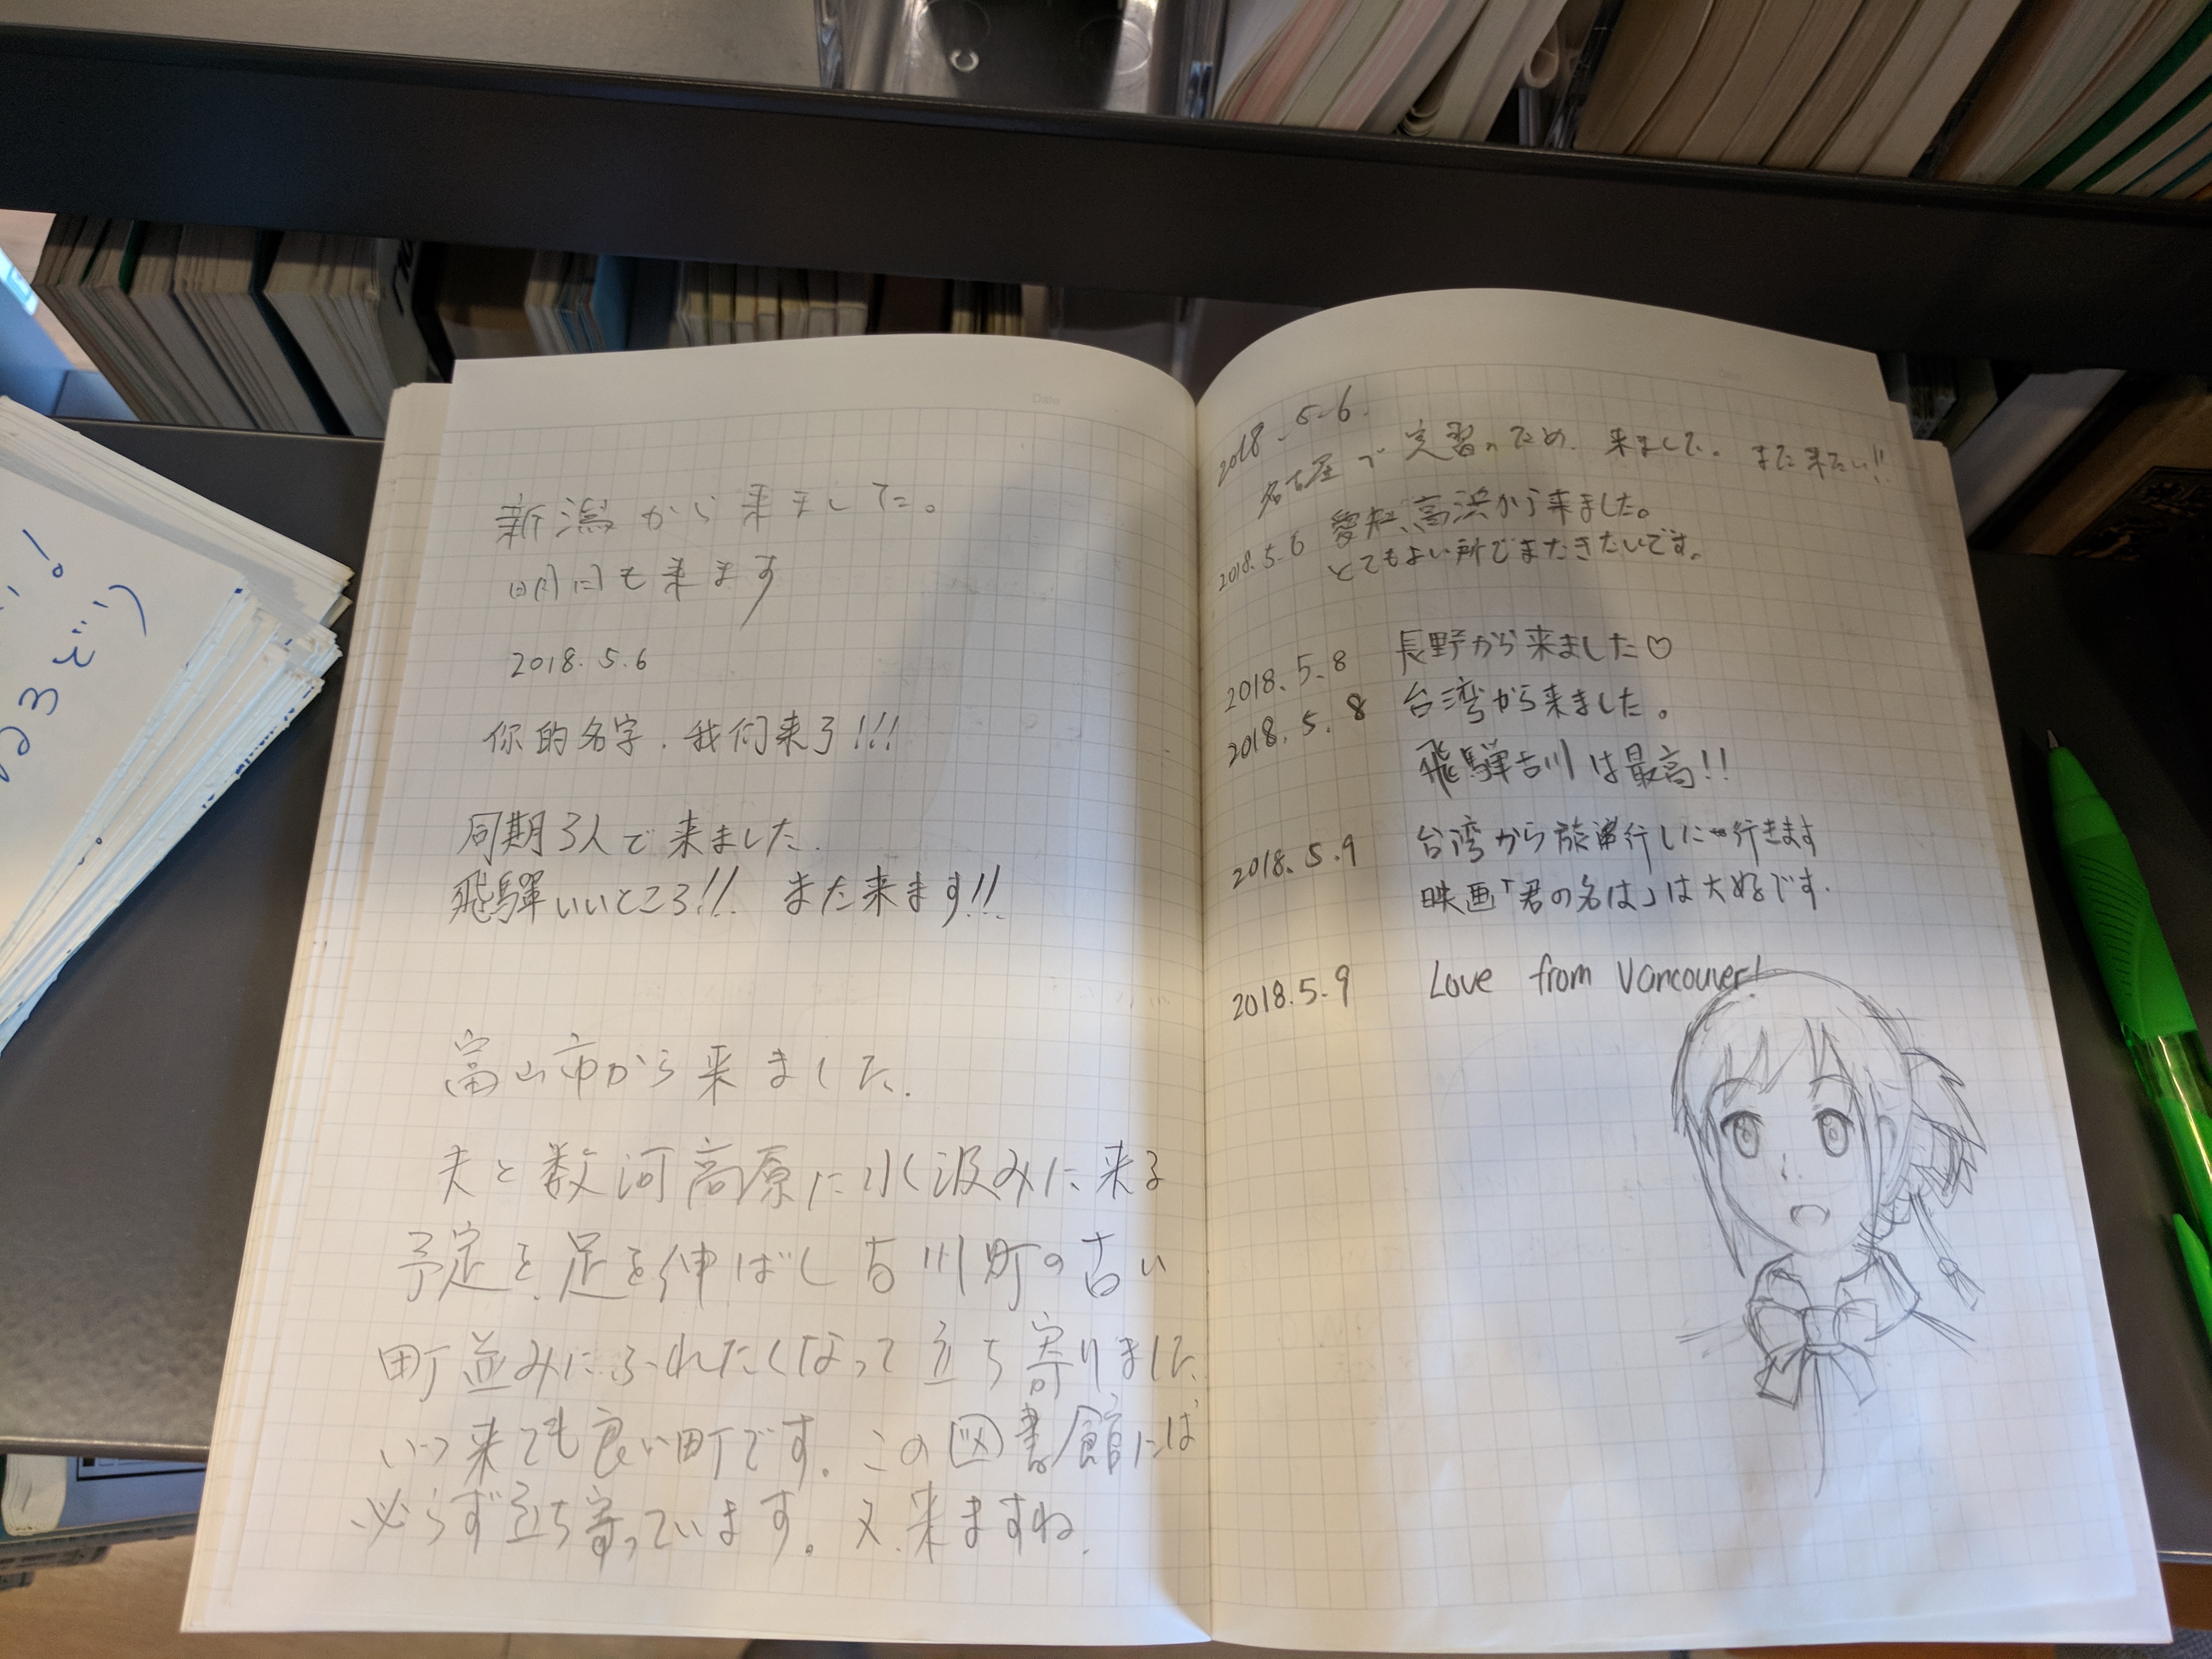 新潟から来ました。
明日も来ます
2018.5.6
你的名字．我们来了!!!
同期3人で来ました．
飛騨いいところ!! また来ます!!
富山市から来ました．
夫と数河高原に水汲みに来る
予定を、足を伸ばし古川町の古い
町並みにふれたくなって立ち寄りました
いつ来ても良い町です。この図書館には
必らず立ち寄っています。又、来ますね．
Date
2018.5.6.
名古屋で実習のため、来ました。また来たい!!
2018.5.6 愛知、高浜から来ました。
とてもよい所でまたきたいです。
2018.5.8 長野から来ました♡
2018.5.8 台湾から来ました。
飛騨古川は最高!!
2018.5.9 台湾から旅行しに行きます
映画「君の名は」は大好です．
2018.5.9 Love from Vancouver!